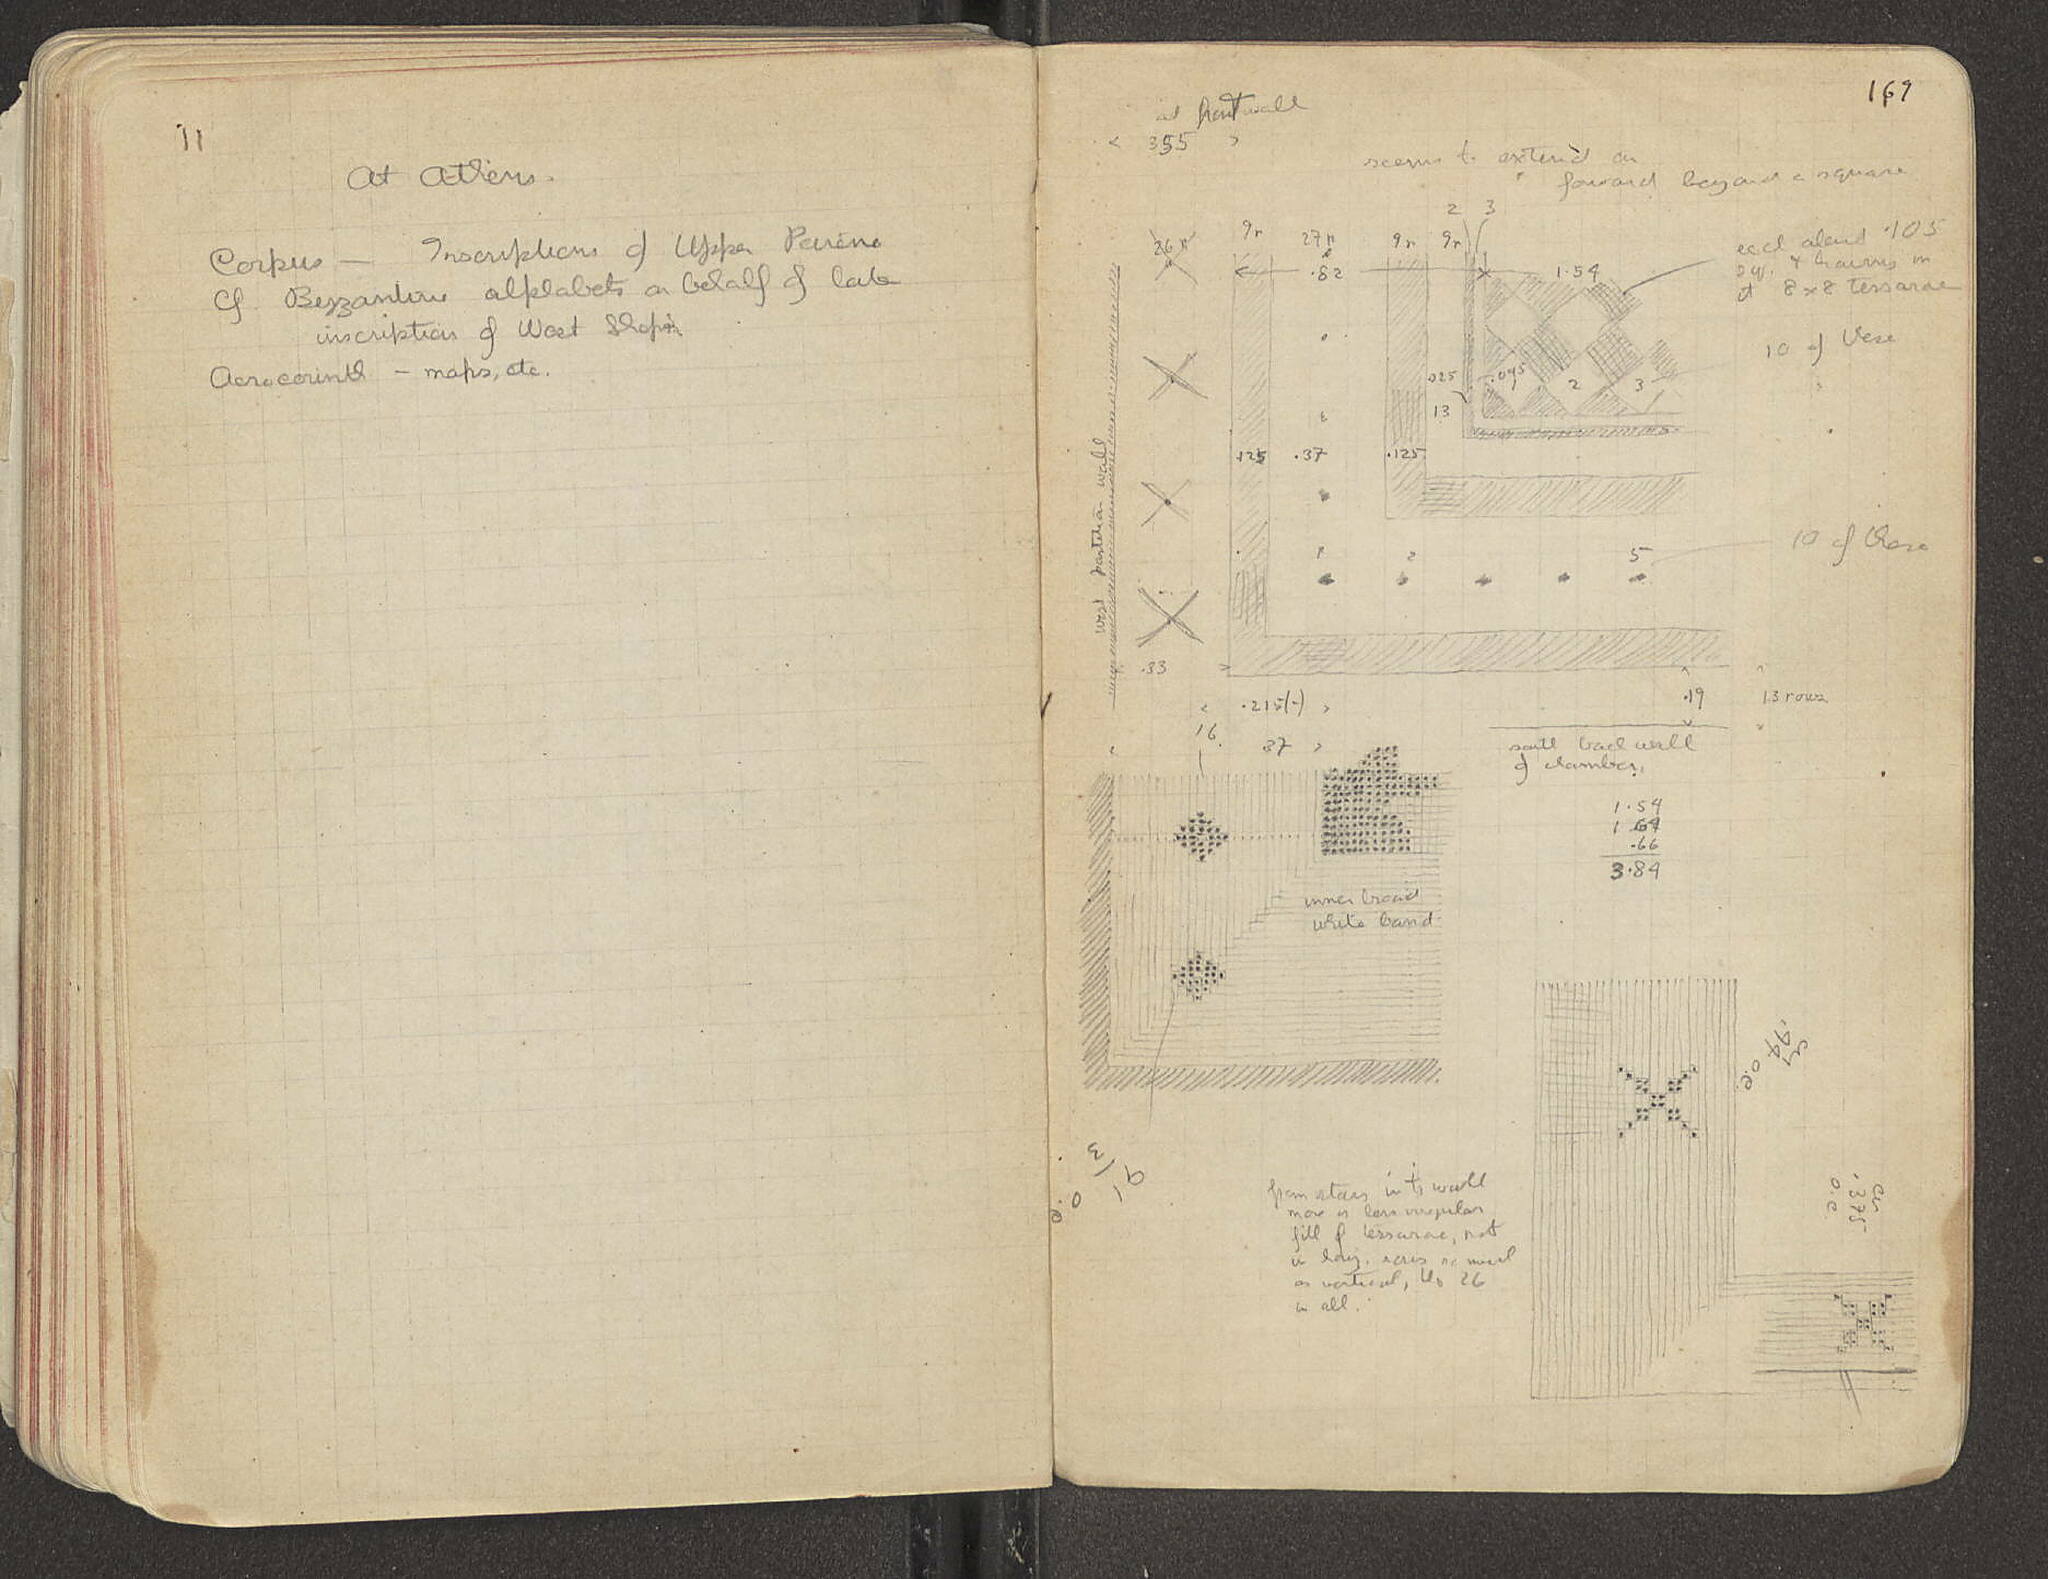 11
At Athens.
Corpus — Inscriptions of Upper Peirene
Cf. Byzantine alphabets on behalf of late
inscription of West Shops
Acrocorinth – maps, etc.
169
at front wall
355
seems to extend on
forward beyond a square
2 3
26 r 9r 27r 9r 9r
.82 1.54
each about .105
sq. &
at 8 x 8 tesserae
10 of these
.025 .095 1 2 3
13
.125 .37 .125
west partition wall
1 2 5
10 of these
.33
.19 13 rows
.215(-)
16
37
south back wall
of chamber.
1.54
1 64
.66
3.84
inner broad
white band
.94 o.c.
.375
o.c.
9/13
o.c.
from stars in to wall
more or less irregular
fill of tesserae, not
in horiz. rows so much
as vertical, to 26
in all.